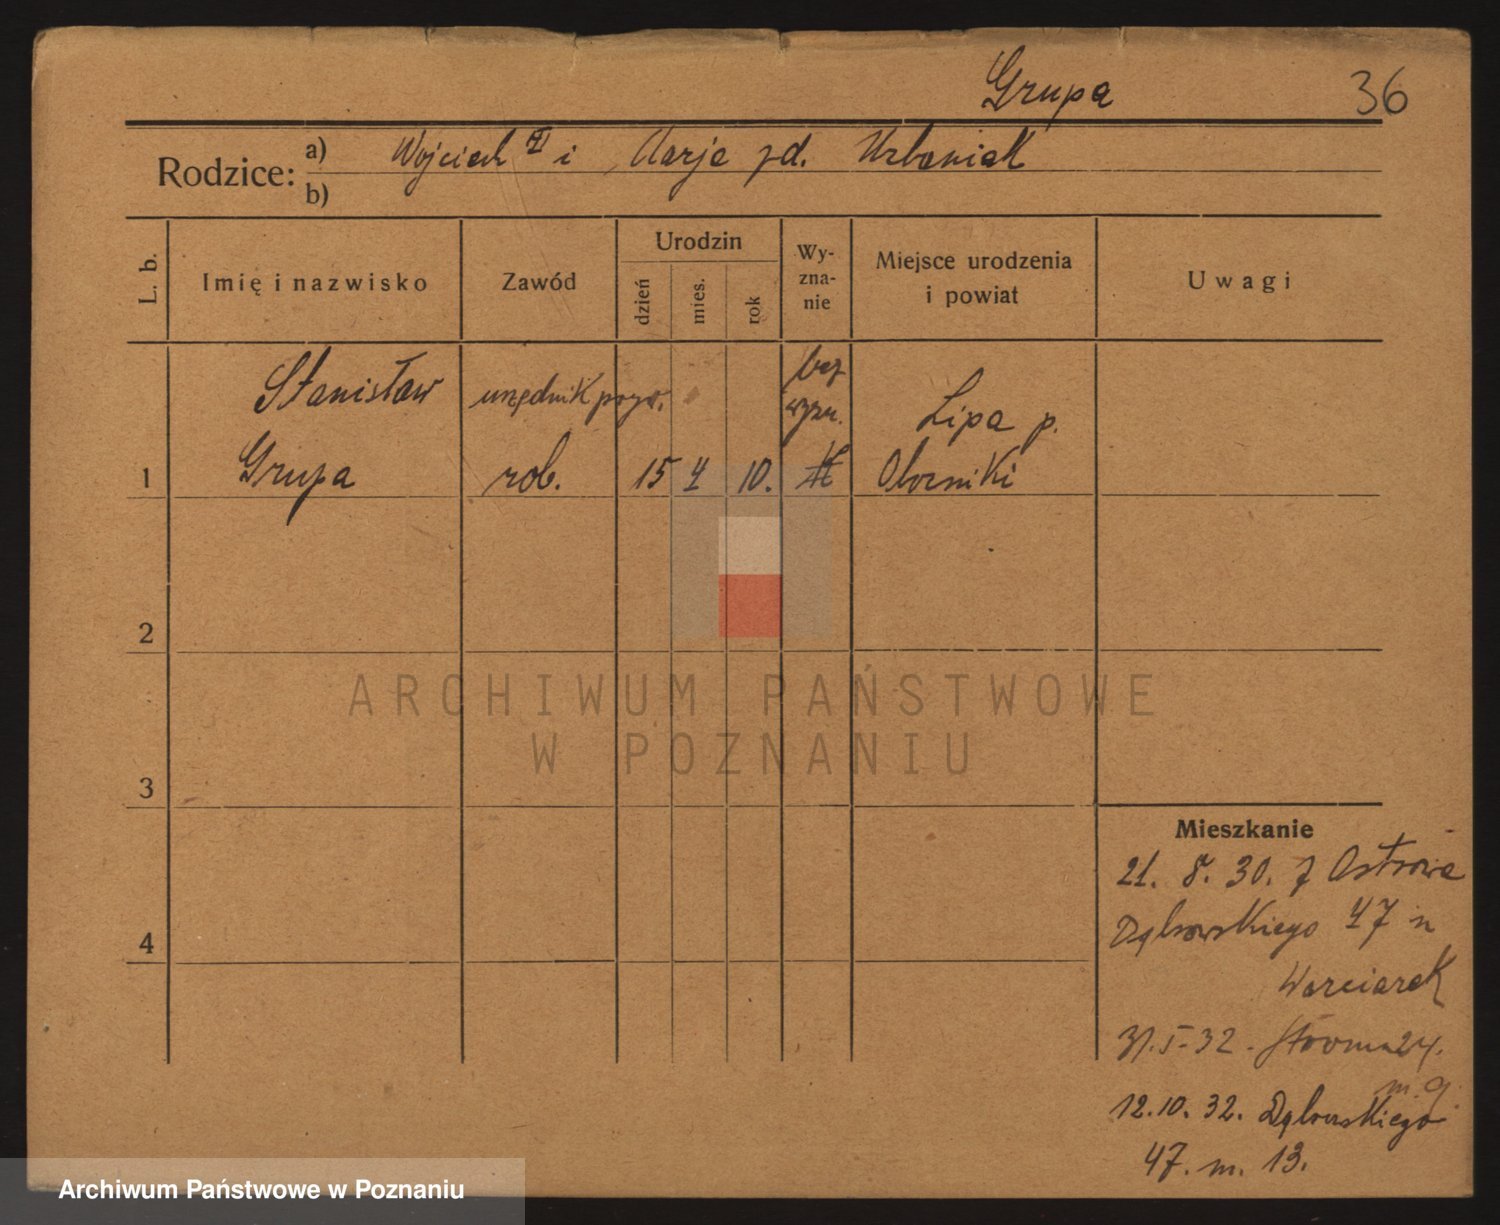 Grupa 36
Rodzice: a) Wojciech i Marja zd. Urbaniak
b)
L. b. Imię i nazwisko Zawód Urodzin dzień mies. rok Wy-zna-nie Miejsce urodzenia i powiat Uwagi
Stanisław urzędnik pryw. bez wyzn. Lipa p.
1 Grupa rob. 15 4 10. rk Oborniki
2
3
4
Mieszkanie
21. 8. 30. z Ostrowa
Dąbrowskiego 47 u
Warciarek
31.5-32. Stroma 24.
m. 9.
12.10.32. Dąbrowskiego
47. m. 13.
ARCHIWUM PAŃSTWOWE
W POZNANIU
Archiwum Państwowe w Poznaniu